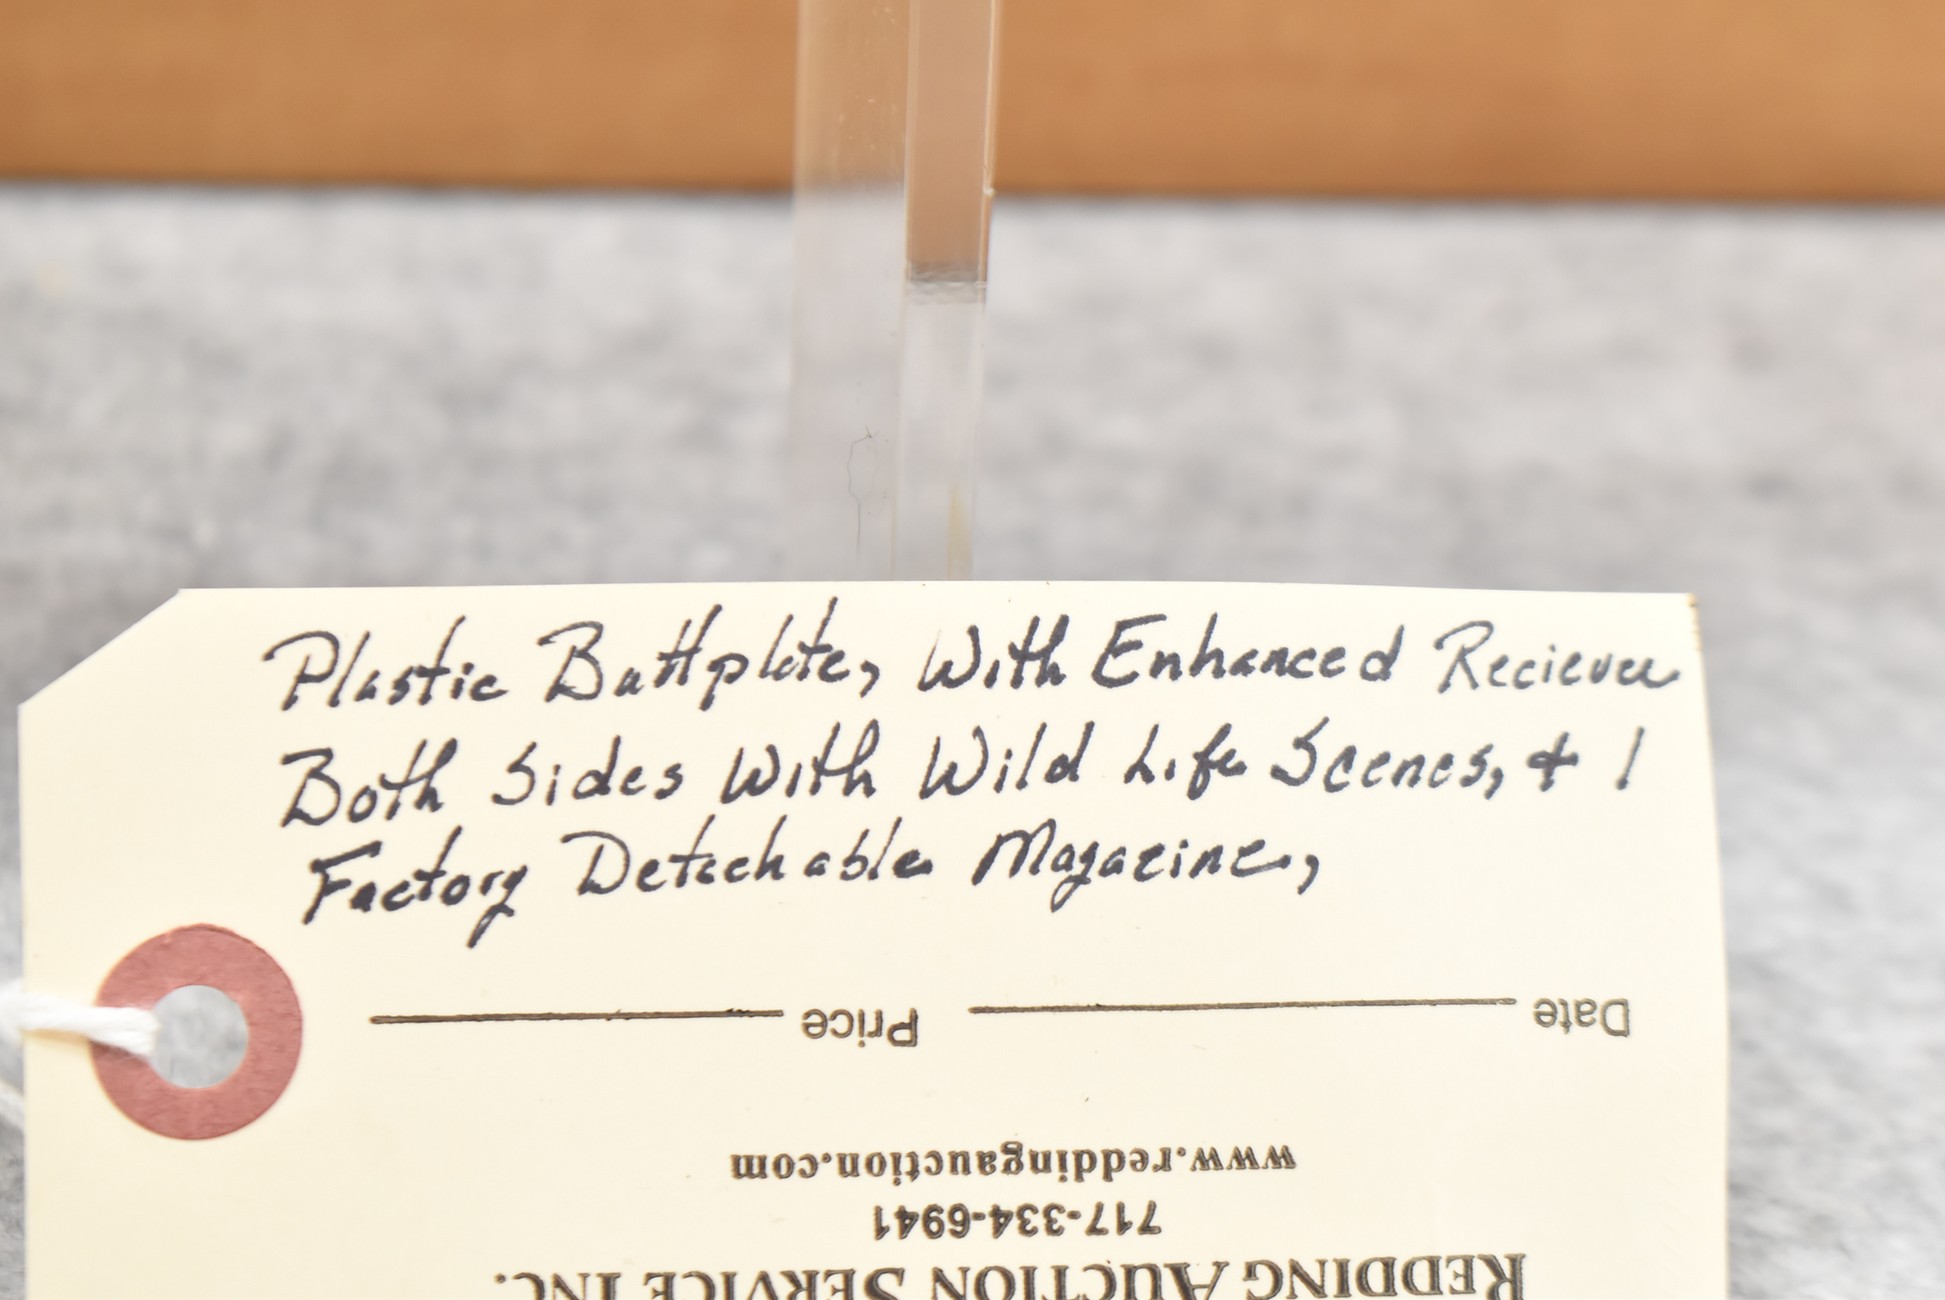 Plastic Buttplate, With Enhanced Reciever
Both Sides With Wild Life Scenes, & 1
Factory Detachable Magazine,
Date Price
www.reddingauction.com
717-334-6941
REDDING AUCTION SERVICE INC.